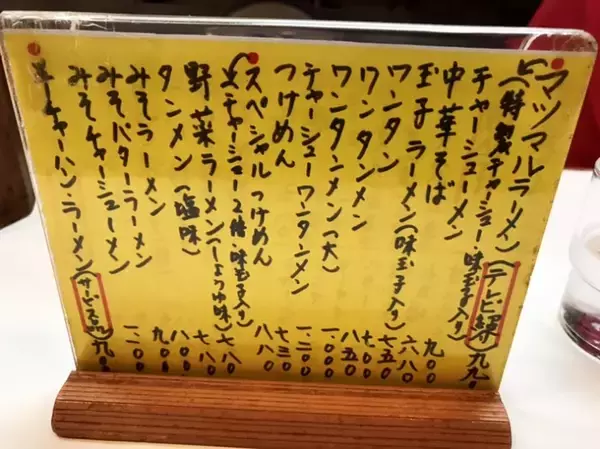 マツマルラーメン(テレビ紹介)九九〇
(特製チャーシュー・味玉子入り)
チャーシューメン 九〇〇
中華そば 六八〇
玉子ラーメン(味玉子入り) 七五〇
ワンタン 七〇〇
ワンタンメン 八五〇
ワンタンメン(大) 一〇〇〇
チャーシューワンタンメン 一二〇〇
つけめん 七三〇
スペシャルつけめん 八八〇
(チャーシュー2倍・味玉子入り)
野菜ラーメン(しょうゆ味) 七八〇
タンメン(塩味) 七八〇
みそラーメン 八〇〇
みそバターラーメン 九〇〇
みそチャーシューメン 一二〇〇
半チャーハン・ラーメン(サービス品)九〇〇